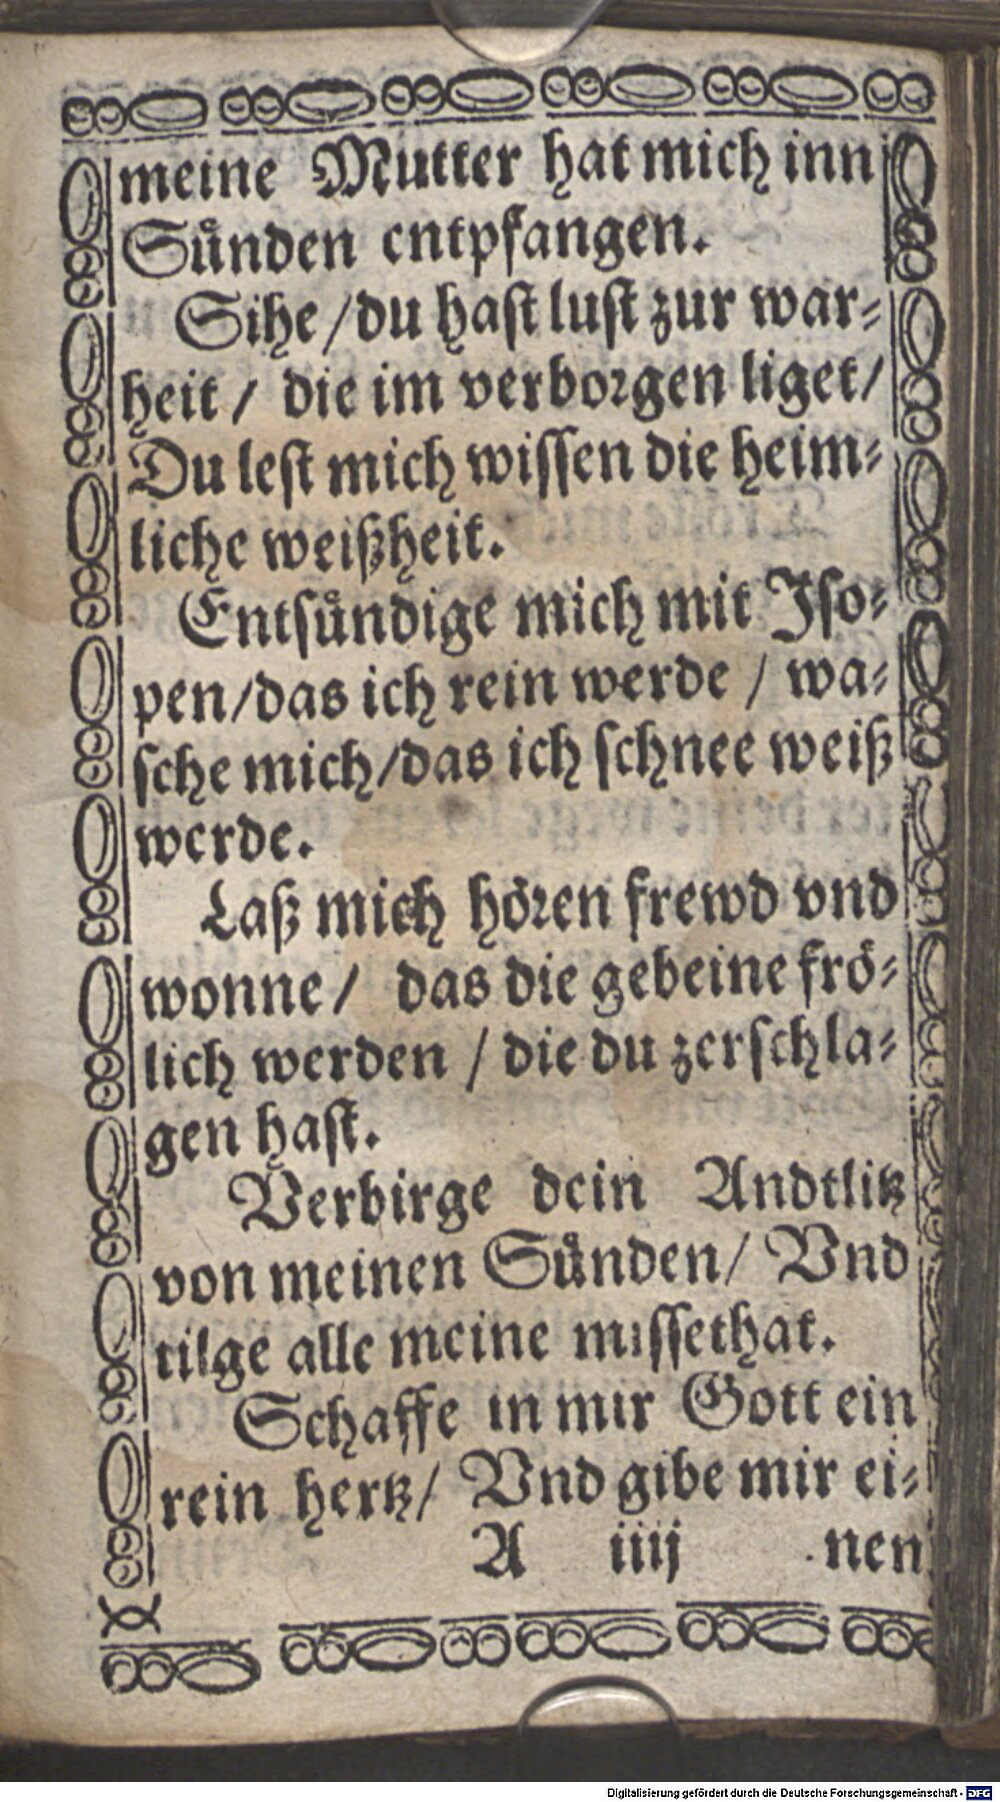 meine Mutter hat mich inn
Sůnden entpfangen.
Sihe / du hast lust zur war⸗
heit / die im verborgen liget /
Du lest mich wissen die heim⸗
liche weißheit.
Entsůndige mich mit Iso⸗
pen / das ich rein werde / wa⸗
sche mich / das ich schnee weiß
werde.
Laß mich hören frewd vnd
wonne / das die gebeine frö⸗
lich werden / die du zerschla⸗
gen hast.
Verbirge dein Andtlitz
von meinen Sůnden / Vnd
tilge alle meine missethat.
Schaffe in mir Gott ein
rein hertz / Vnd gibe mir ei⸗
A iiij nen
Digitalisierung gefördert durch die Deutsche Forschungsgemeinschaft - DFG